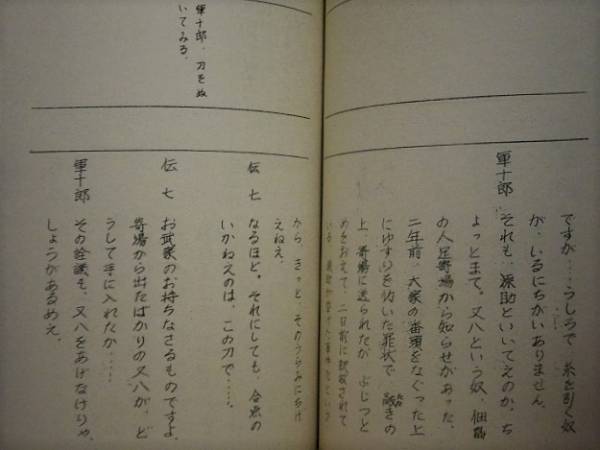 ですが‥‥うしろで 糸を引く奴
が、いるにちがいありません。
軍十郎 それも、源助といいてえのか。ち
ょっとまて。又八という奴、佃島
の人足寄場から知らせがあった。
二年前、大衆の番頭をなぐった上
にゆすりを仂いた罪状で 敲きの
上、寄場に送られたが ぶじつと
めをおえて、二日前に放免されて
いる。
から、きっと、そのうらみにちげ
えねえ。
伝七 なるほど。それにしても、合点の
いかねえのは、この刀で‥‥。
軍十郎、刀をぬ
いてみる。
伝七 お武家のお持ちなさるものですよ。
寄場から出たばかりの又八が、ど
うして手に入れたか‥‥
軍十郎 その詮議も、又八をあげなけりゃ、
しょうがあるめえ。